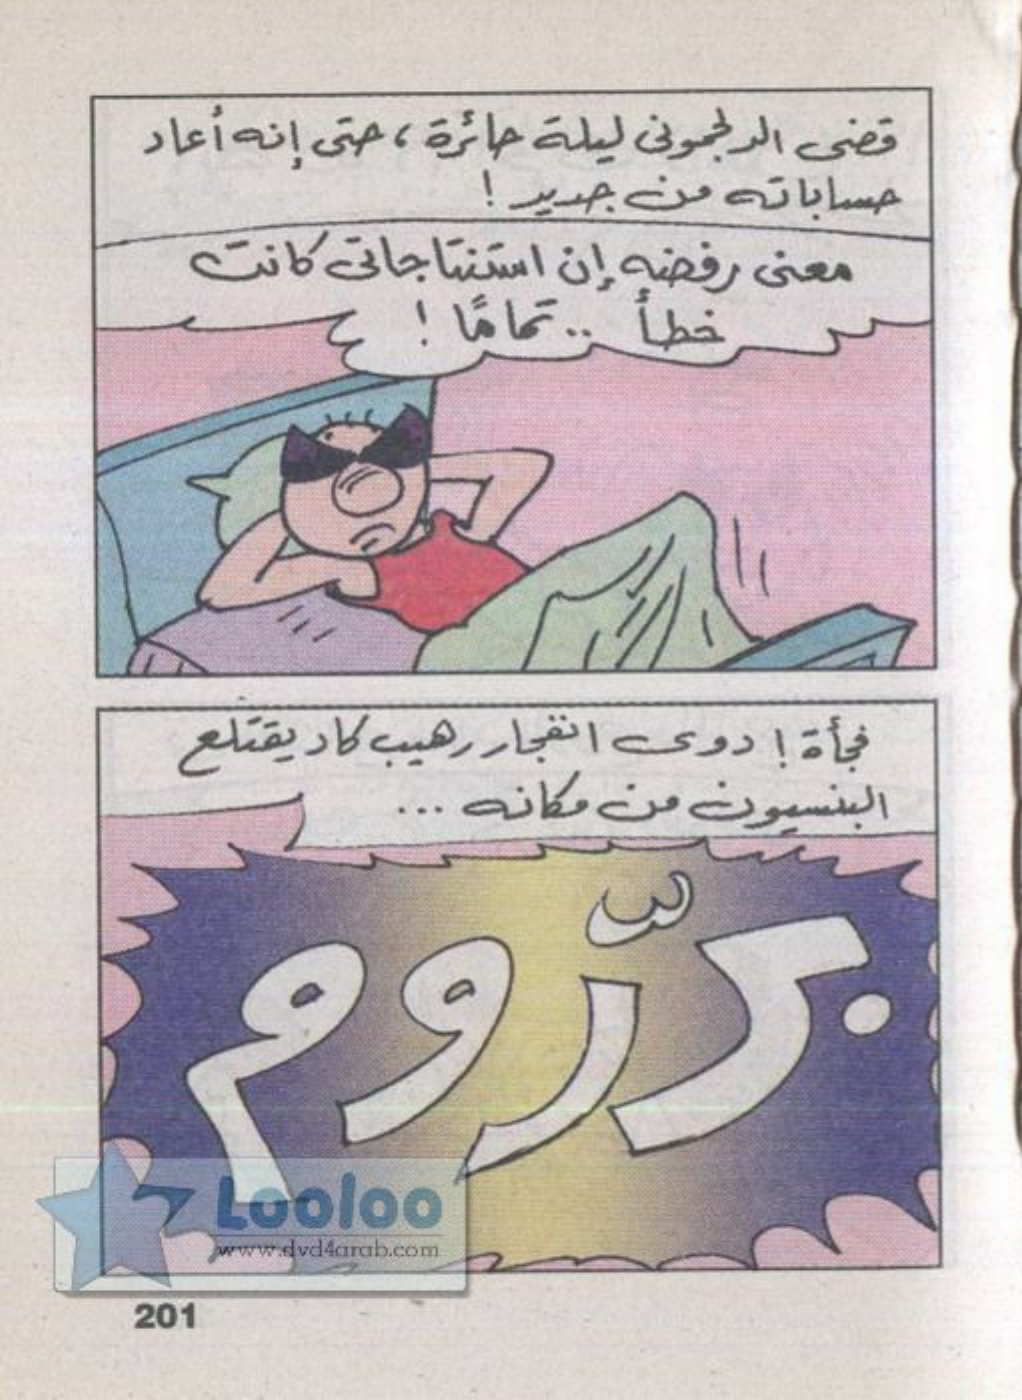 قضى الدلجمونى ليلة حائرة، حتى إنه أعاد
حساباته من جديد !
معنى رفضه إن استنتاجاتى كانت
خطأ .. تمامًا !
فجأة ! دوى انفجار رهيب كاد يقتلع
البنسيون من مكانه ...
بررّوم
Looloo
www.dvd4arab.com
201